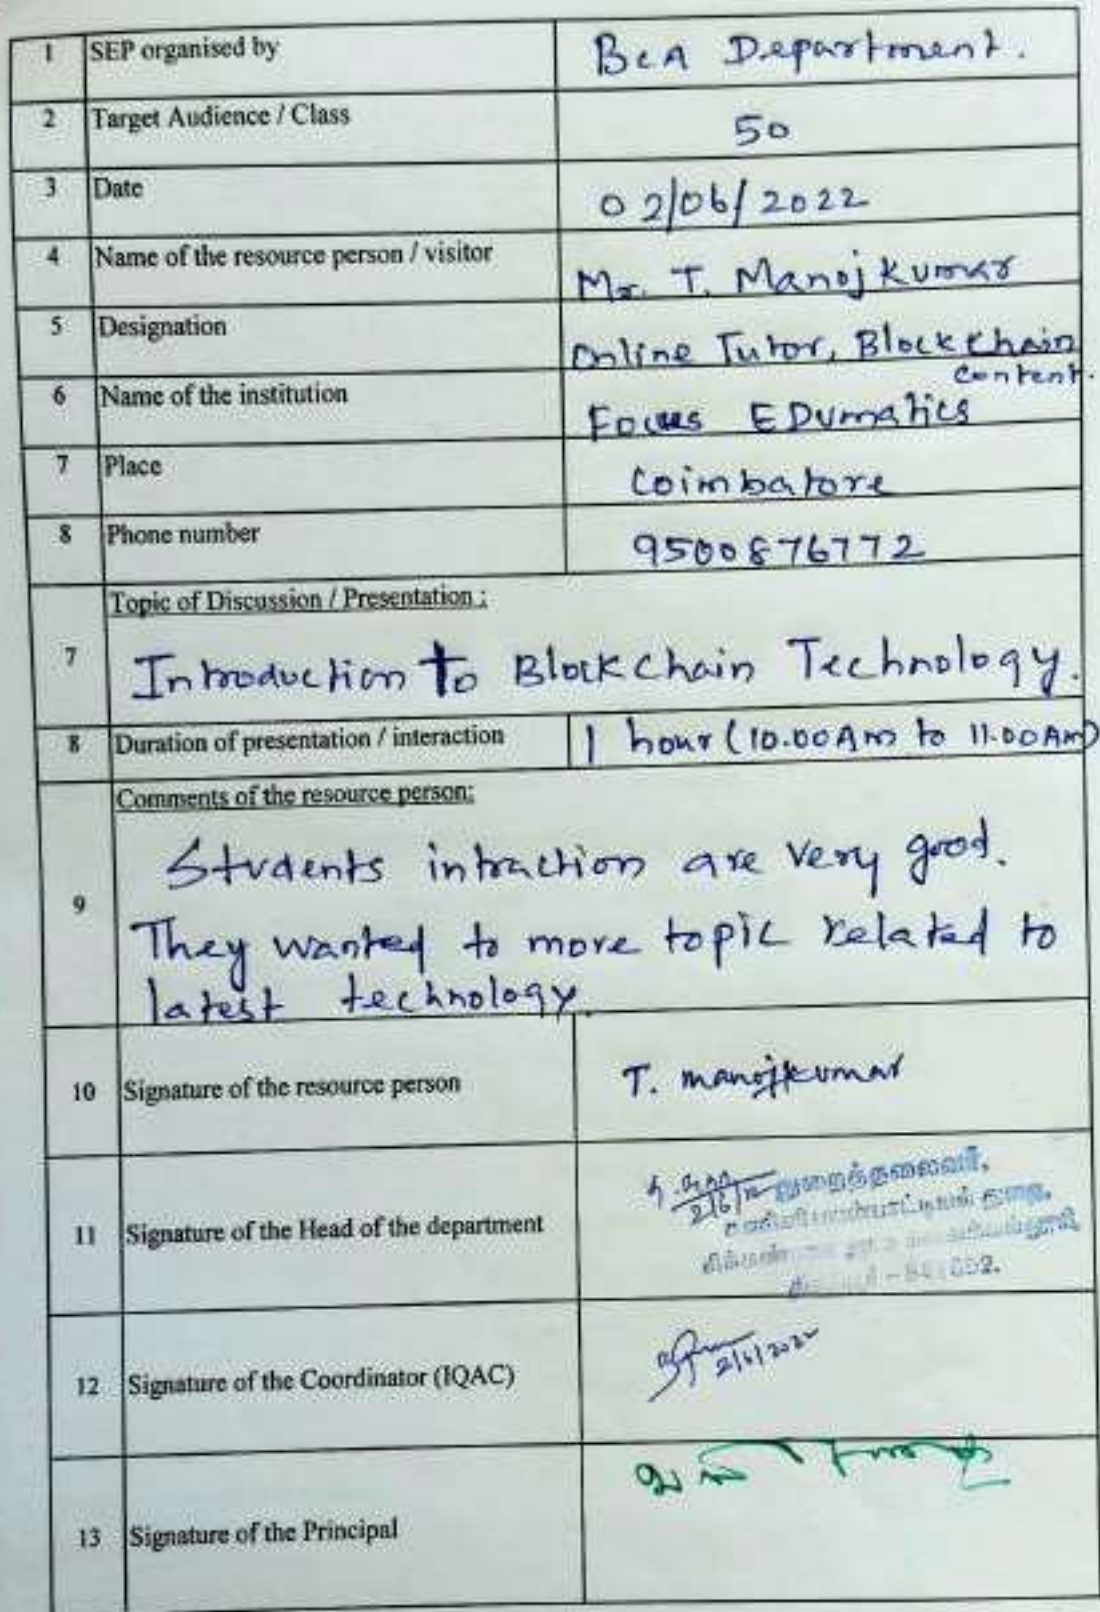 1 SEP organised by BCA Department.
2 Target Audience / Class 50
3 Date 02/06/2022
4 Name of the resource person / visitor Mr. T. Manoj Kumar
5 Designation Online Tutor, Block Chain
Content.
6 Name of the institution Focus EDumatics
7 Place Coimbatore
8 Phone number 9500876772
Topic of Discussion / Presentation :
7 Introduction To Block Chain Technology.
8 Duration of presentation / interaction 1 hour (10.00 Am to 11.00 Am)
Comments of the resource person:
Students intraction are very good.
9
They wanted to more topic related to
latest technology.
10 Signature of the resource person T. manojkumar
துறைத்தலைவர்,
11 Signature of the Head of the department 2/6/22
துறை,
12 Signature of the Coordinator (IQAC) 2/6/2022
13 Signature of the Principal